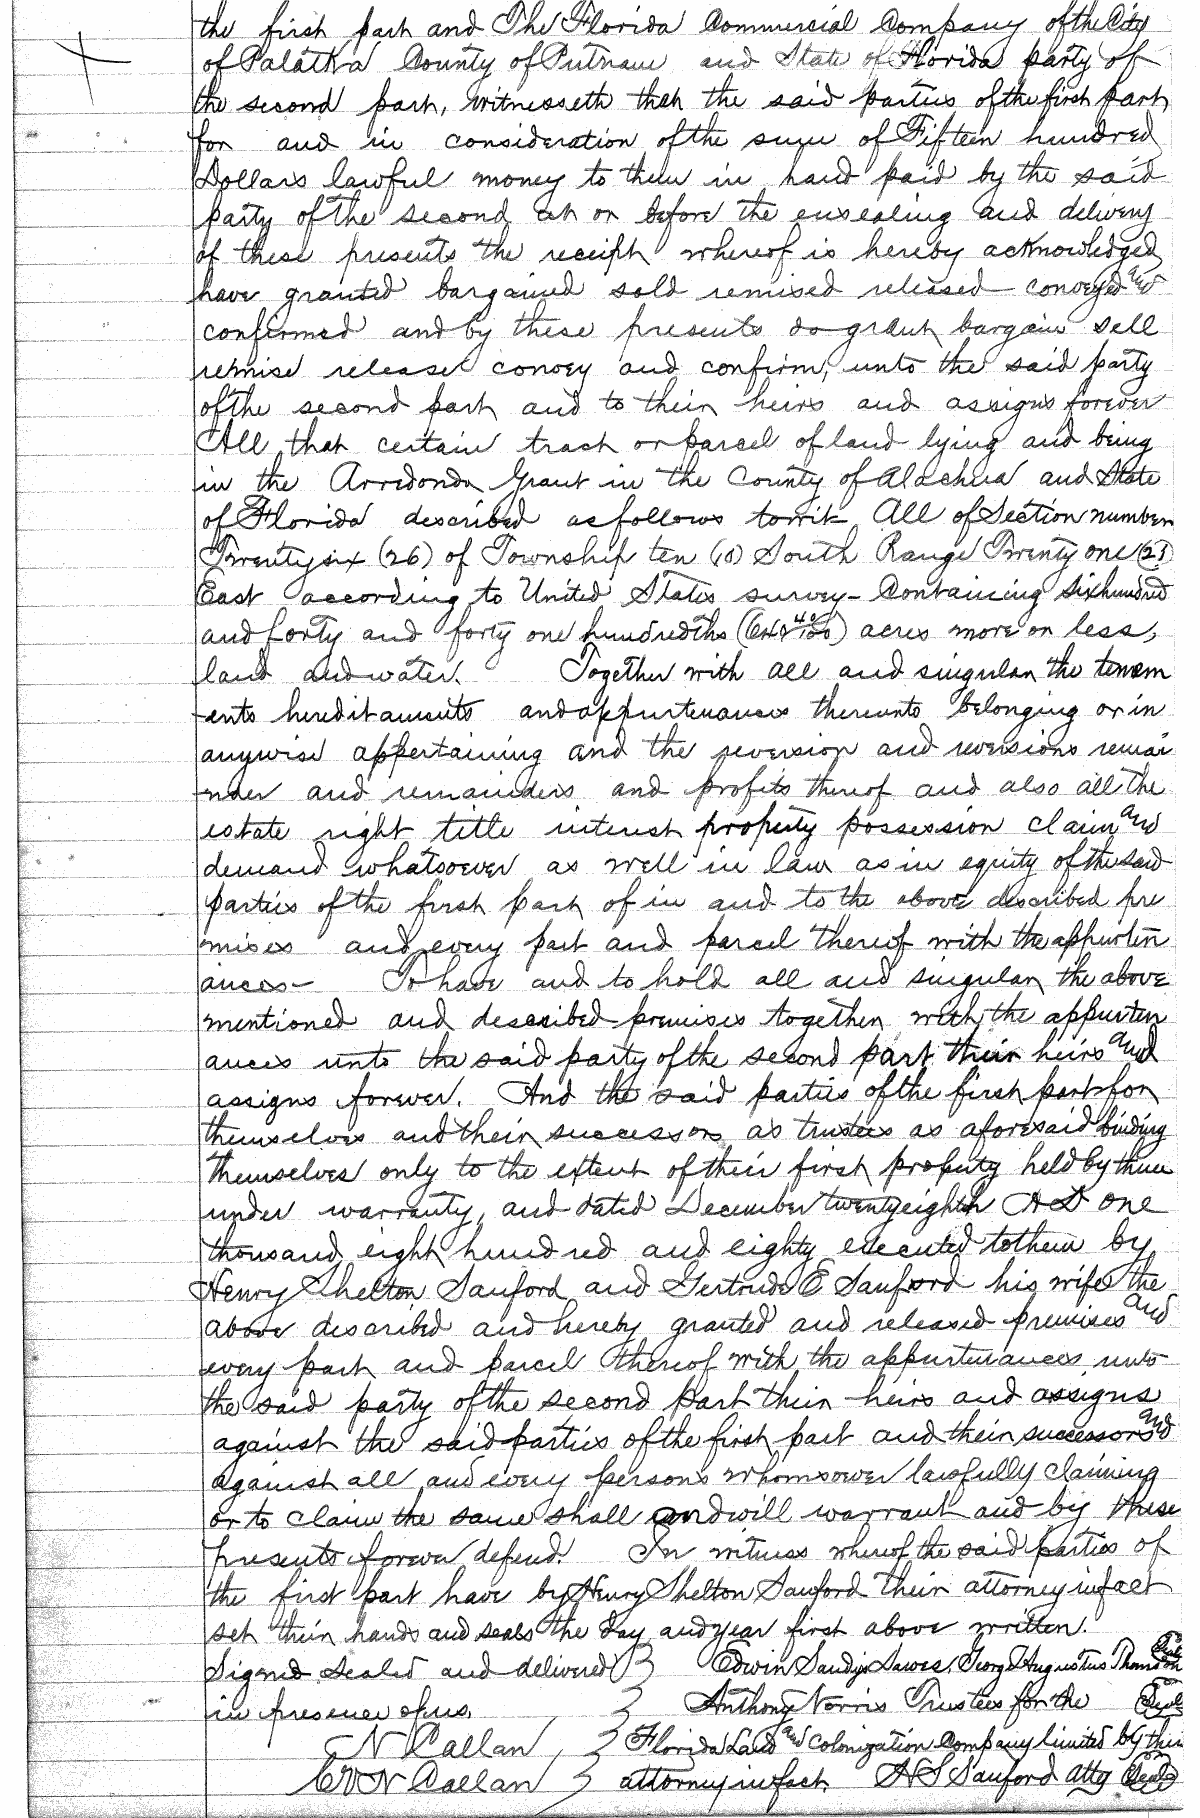 the first part and The Florida Commercial Company of the City
of Palatka County of Putnam and State of Florida party of
the second part, witnesseth that the said parties of the first part
for and in consideration of the sum of Fifteen hundred
Dollars lawful money to them in hand paid by the said
party of the second at or before the ensealing and delivery
of these presents the receipt whereof is hereby acknowledged
have granted bargained sold remised released conveyed and
confirmed and by these presents do grant bargain sell
remise release convey and confirm, unto the said party
of the second part and to their heirs and assigns forever
All that certain tract or parcel of land lying and being
in the Arredondo Grant in the County of Alachua and State
of Florida described as follows towit All of Section number
Twenty six (26) of Township ten (10) South Range Twenty one (21)
East according to United States survey - Containing six hundred
and forty and forty one hundredths (640 40/100) acres more or less,
land and water. Together with all and singular the tenem
ents hereditaments and appurtenances thereunto belonging or in
anywise appertaining and the reversion and reversions remai
nder and remainders and profits thereof and also all the
estate right title interest property possession claim and
demand whatsoever as well in law as in equity of the said
parties of the first part of in and to the above described pre
mises and every part and parcel thereof with the appurten
ances - To have and to hold all and singular the above
mentioned and described premises together with the appurten
ances unto the said party of the second part their heirs and
assigns forever. And the said parties of the first part for
themselves and their successors as trustees as aforesaid binding
themselves only to the extent of their first property held by them
under warranty, and dated December twenty eighth AD one
thousand eight hundred and eighty executed to them by
Henry Shelton Sanford and Gertrude E Sanford his wife the
above described and hereby granted and released premises and
every part and parcel thereof with the appurtenances unto
the said party of the second part their heirs and assigns
against the said parties of the first part and their successors and
against all and every persons whomsoever lawfully claiming
or to claim the same shall and will warrant and by these
presents forever defend. In witness whereof the said parties of
the first part have by Henry Shelton Sanford their attorney in fact
set their hands and seals the day and year first above written.
Signed sealed and delivered } Edwin Sandys Dawes, George Augustus Thomson Seal
in presence of us } Anthony Norris Trustees for the Seal
N Callan } Florida Land and Colonization Company limited by their
N Callan } attorney in fact H S Sanford Atty Seal